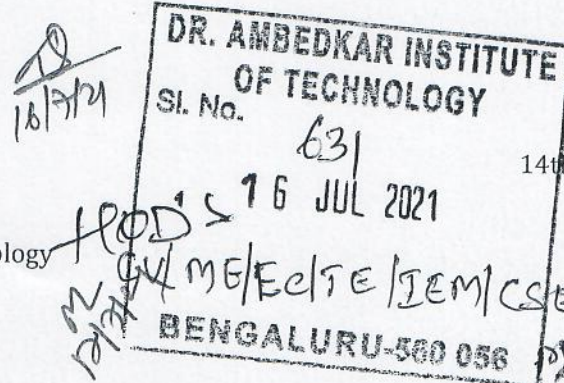 DR. AMBEDKAR INSTITUTE
OF TECHNOLOGY
16/7/21
Sl. No.
631
14th
16 JUL 2021
ology HOD's
CV/ME/EC/TE/IEM/CSE
BENGALURU-560 056